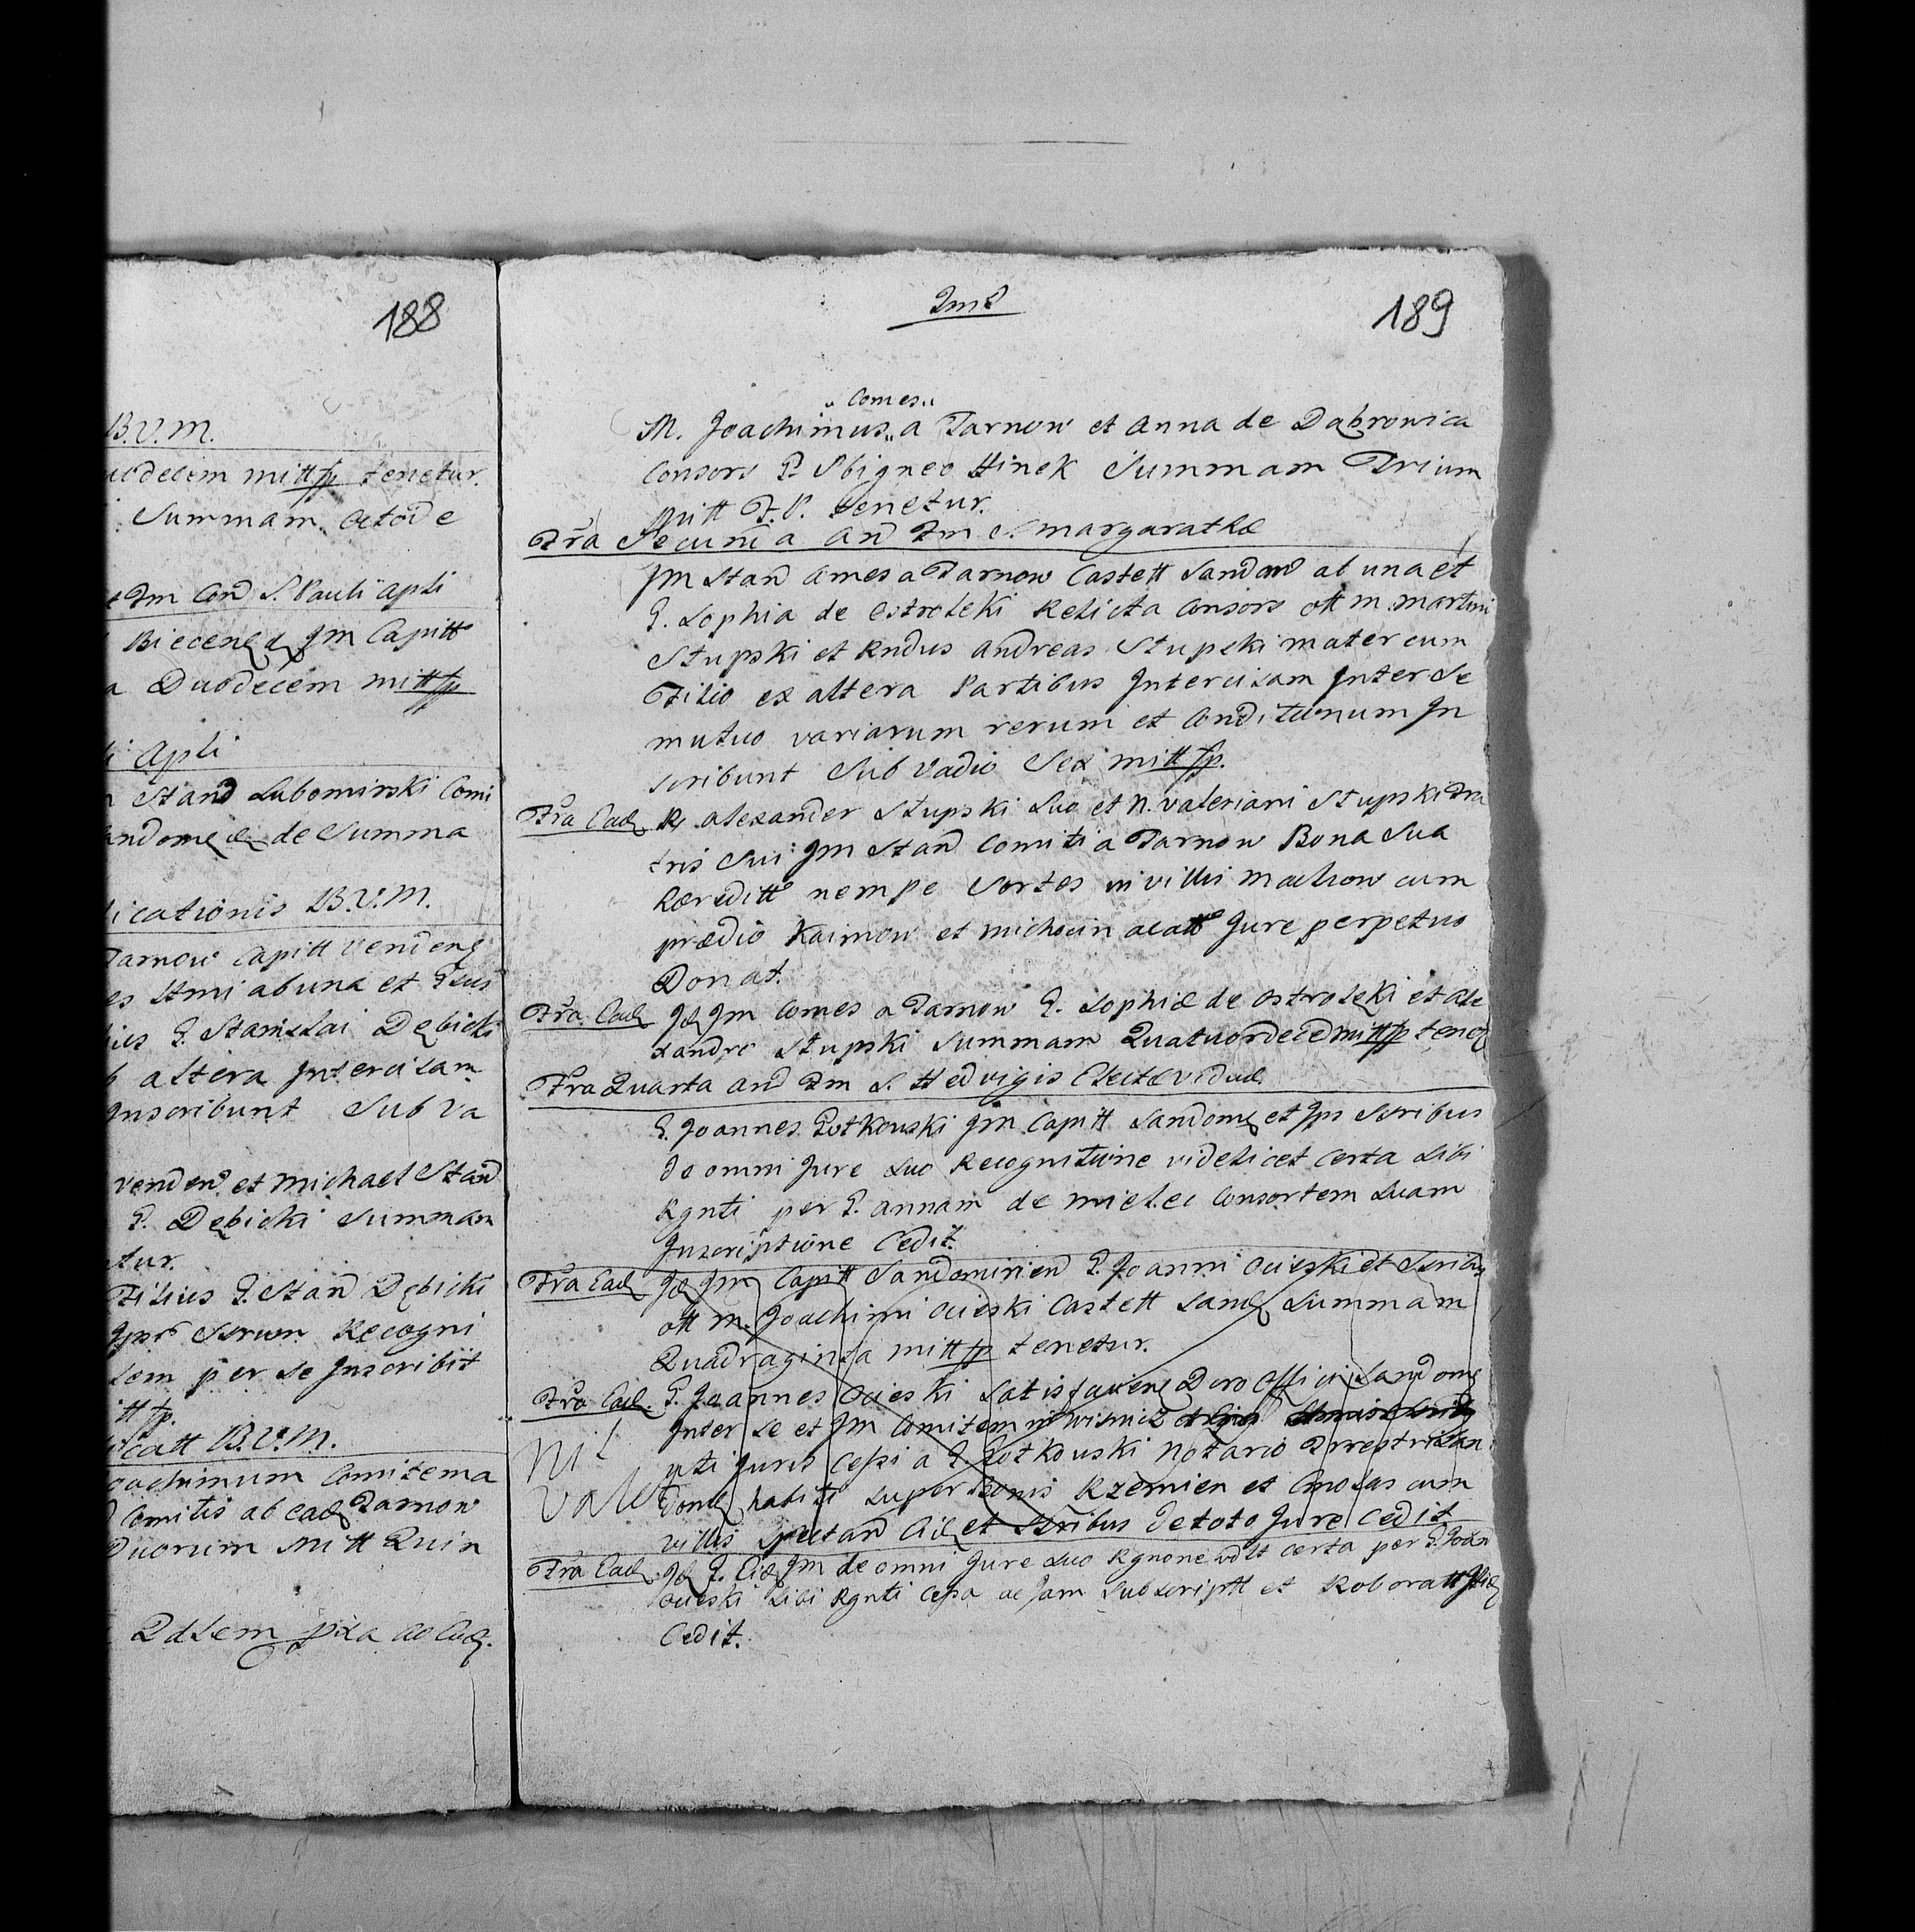 188
B.V.M.
uodecim mitt fp tenetur.
Summam Octode
Fm Con̄d S. Pauli Apli
Biecen et Jm Capitt
a Duodecem mitt fp
i Apli
Stand Lubomirski Comi
andome de Summa
icationis B.V.M.
Tarnow Capitt Venden
es Stmi ab una et
ius G. Stanislai Dębicki
altera Intercisam
Inscribunt Sub Va
venden et Michael Stan̄d
G. Dębicki Summam
tur.
Filius G. Stan̄d Dębicki
Recogni
tem per se Inscribit
tt fp.
icatt B.V.M.
oachimum Comitem a
Comitis ab ead Tarnow
Duorum Mitt Quin
189
"Comes"
M. Joachimus "a Tarnow et Anna de Dąbrowica
Consors G. Sbigneo Hinek Summam Trium
Mitt F.P. tenetur.
Fra Secunda an̄d Fm S. Margarathæ
Jm Stan̄d Comes a Tarnow Castett Sandom ab una et
G. Sophia de Ostroleki Relicta Consors ott M. Martini
Stupski et Rndus Andreas Stupski mater cum
Filio ex altera Partibus Intercisam Inter Se
mutuo variarum rerum et Conditionum In
scribunt Sub Vadio Sex mitt fp.
Fra Ead R. Alexander Stupski Suo et N. Valeriani Stupski Fra
tris Sui Jm Stan̄d Comiti a Tarnow Bona Sua
hæreditt nempe Sortes in villis Machow cum
prædio Kaimow et Michocin Jure perpetuo
Donat.
Fra Ead Id Jm Comes a Tarnow G. Sophiæ de Ostroleki et Ale
xandro Stupski Summam Quatuordecem mitt fp tene
Fra Quarta an̄d Fm S. Hedvigis Electæ Viduæ
G. Joannes Gotkouski Jm Capitt Sandom et Jps Ssribus
de omni Jure Suo Recognitione videlicet Certa Sibi
Rgnti per G. Annam de Mielec Consortem Suam
Inscriptione Cedit.
Fra Ead Id Jm Capitt Sandomirien̄ G. Joanni Ocieski et Ssribus
ott M. Joachimi Ocieski Castett Sand Summam
Quadraginta mitt fp tenetur.
Fra Ead. G. Joannes Ocieski Satisfacien Dcro Officii Sandom
Inter Se et Jm Comitem in Wisnicz
uti Juris Cessi a G. Gotkouski Notario Trrestri San
Nil
valet
dom habiti Super Bonis Rzemien et cum
villis Spectan̄d Eid et Ssribus de toto Jure Cedit
Fra Ead Id G. Eid Jm de omni Jure Suo Rgnone vdlt Certa per G. Joan
Ocieski Sibi Rgnti Cessa ac Jam Subscriptt et Roboratt
Cedit.